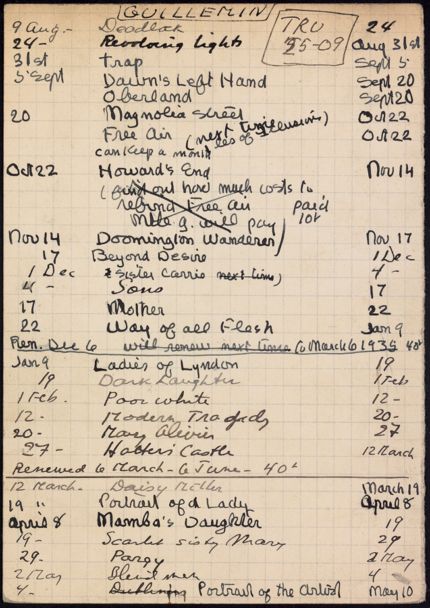 GUILLEMIN
TRU
25-09
9 Aug.- Deadlock 24
24- Revolving Lights Aug 31st
31st Trap Sept 5
5 Sept Dawn's Left Hand Sept 20
Oberland Sept 20
20 Magnolia Street Oct 22
Free Air (next time Oct 22
can keep a month
Oct 22 Howard's End Nov 14
(find out how much costs to
rebind Free Air paid
Mlle G. will pay) 10f
Nov 14 Doomington Wanderer Nov 17
17 Beyond Desire 1 Dec
1 Dec Sister Carrie next time) 4-
4- Sons 17
17 Mother 22
22 Way of all Flesh Jan 9
Ren. Dec 6 will renew next time 6 March 6 1935 40f
Jan 9 Ladies of Lyndon 19
19 Dark Laughter 1 Feb
1 Feb. Poor White 12-
12- Modern Tragedy 20-
20- Mary Olivier 27
27- Hatter's Castle 12 March
Renewed 6 March - 6 June - 40f
12 March- Daisy Miller March 19
19 " Portrait of a Lady April 8
April 8 Mamba's Daughter 19
19- Scarlet Sister Mary 29
29- Porgy 2 May
2 May 4
4- Dubliners Portrait of the Artist May 10